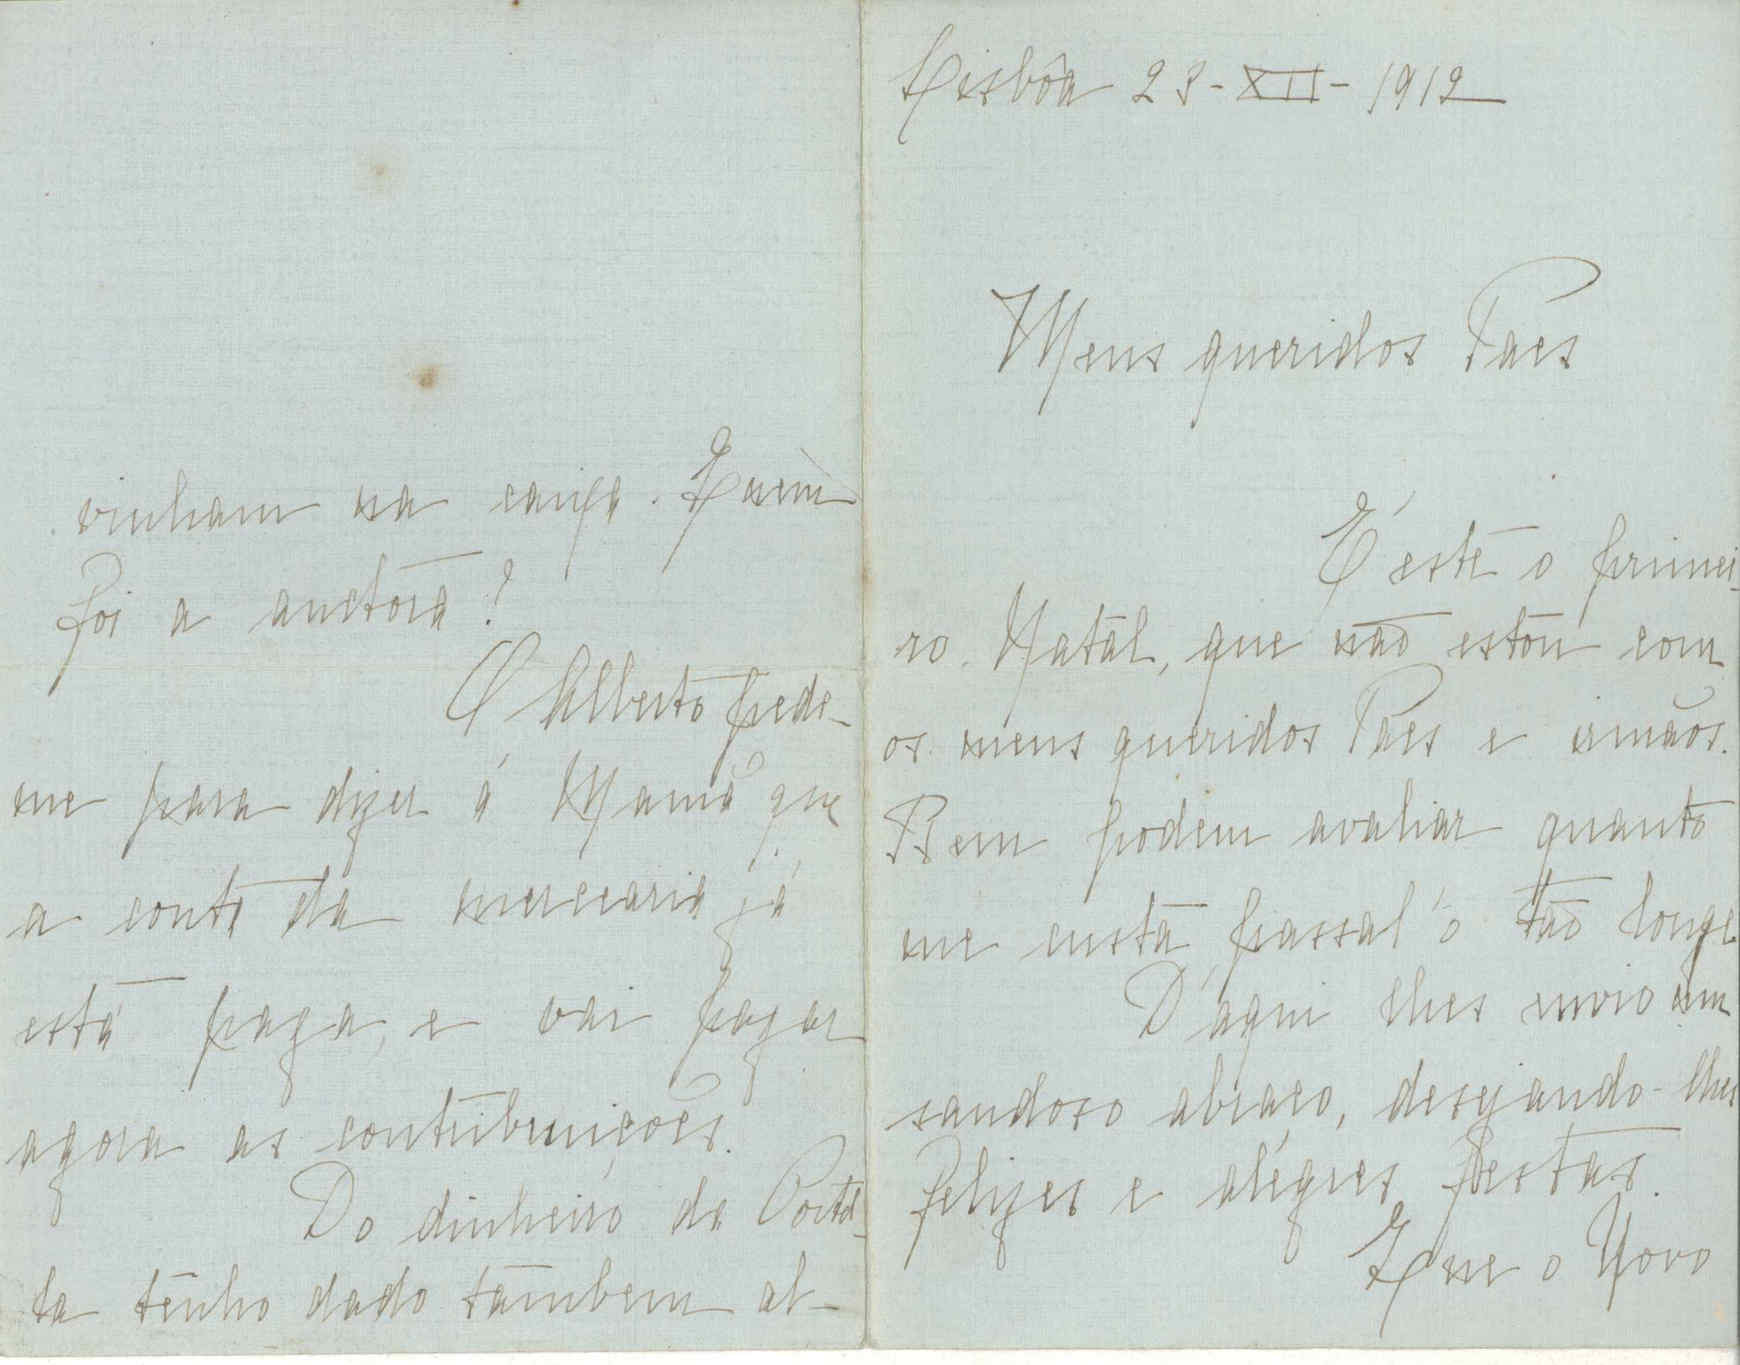 Lisbôa 23-XII-1912
Meus queridos Paes
É este o primei-
ro Natal, que não estou com
os meus queridos Paes e irmãos.
Bem podem avaliar quanto
me custa passal'o tão longe
D'aqui lhes envio um
saudoso abraço, desejando-lhes
felizes e alégres festas.
Que o Novo
vinham na caixa. Quem
foi a auctora?
O Alberto pede-
me para dizer á Mamã que
a conta da mercearia já
está paga, e vai pagar
agora as contribuições.
Do dinheiro da Portel-
la tenho dado tambem al-